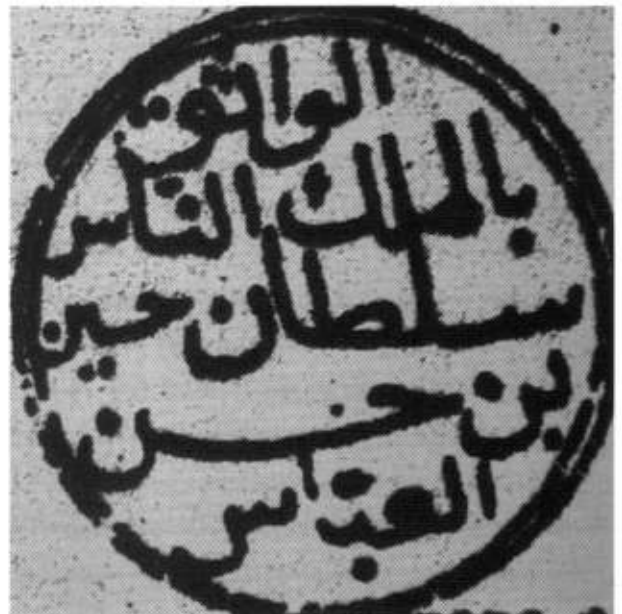 الواثق
بالملك الناس
سلطان حسين
بن حسن
العبّاس